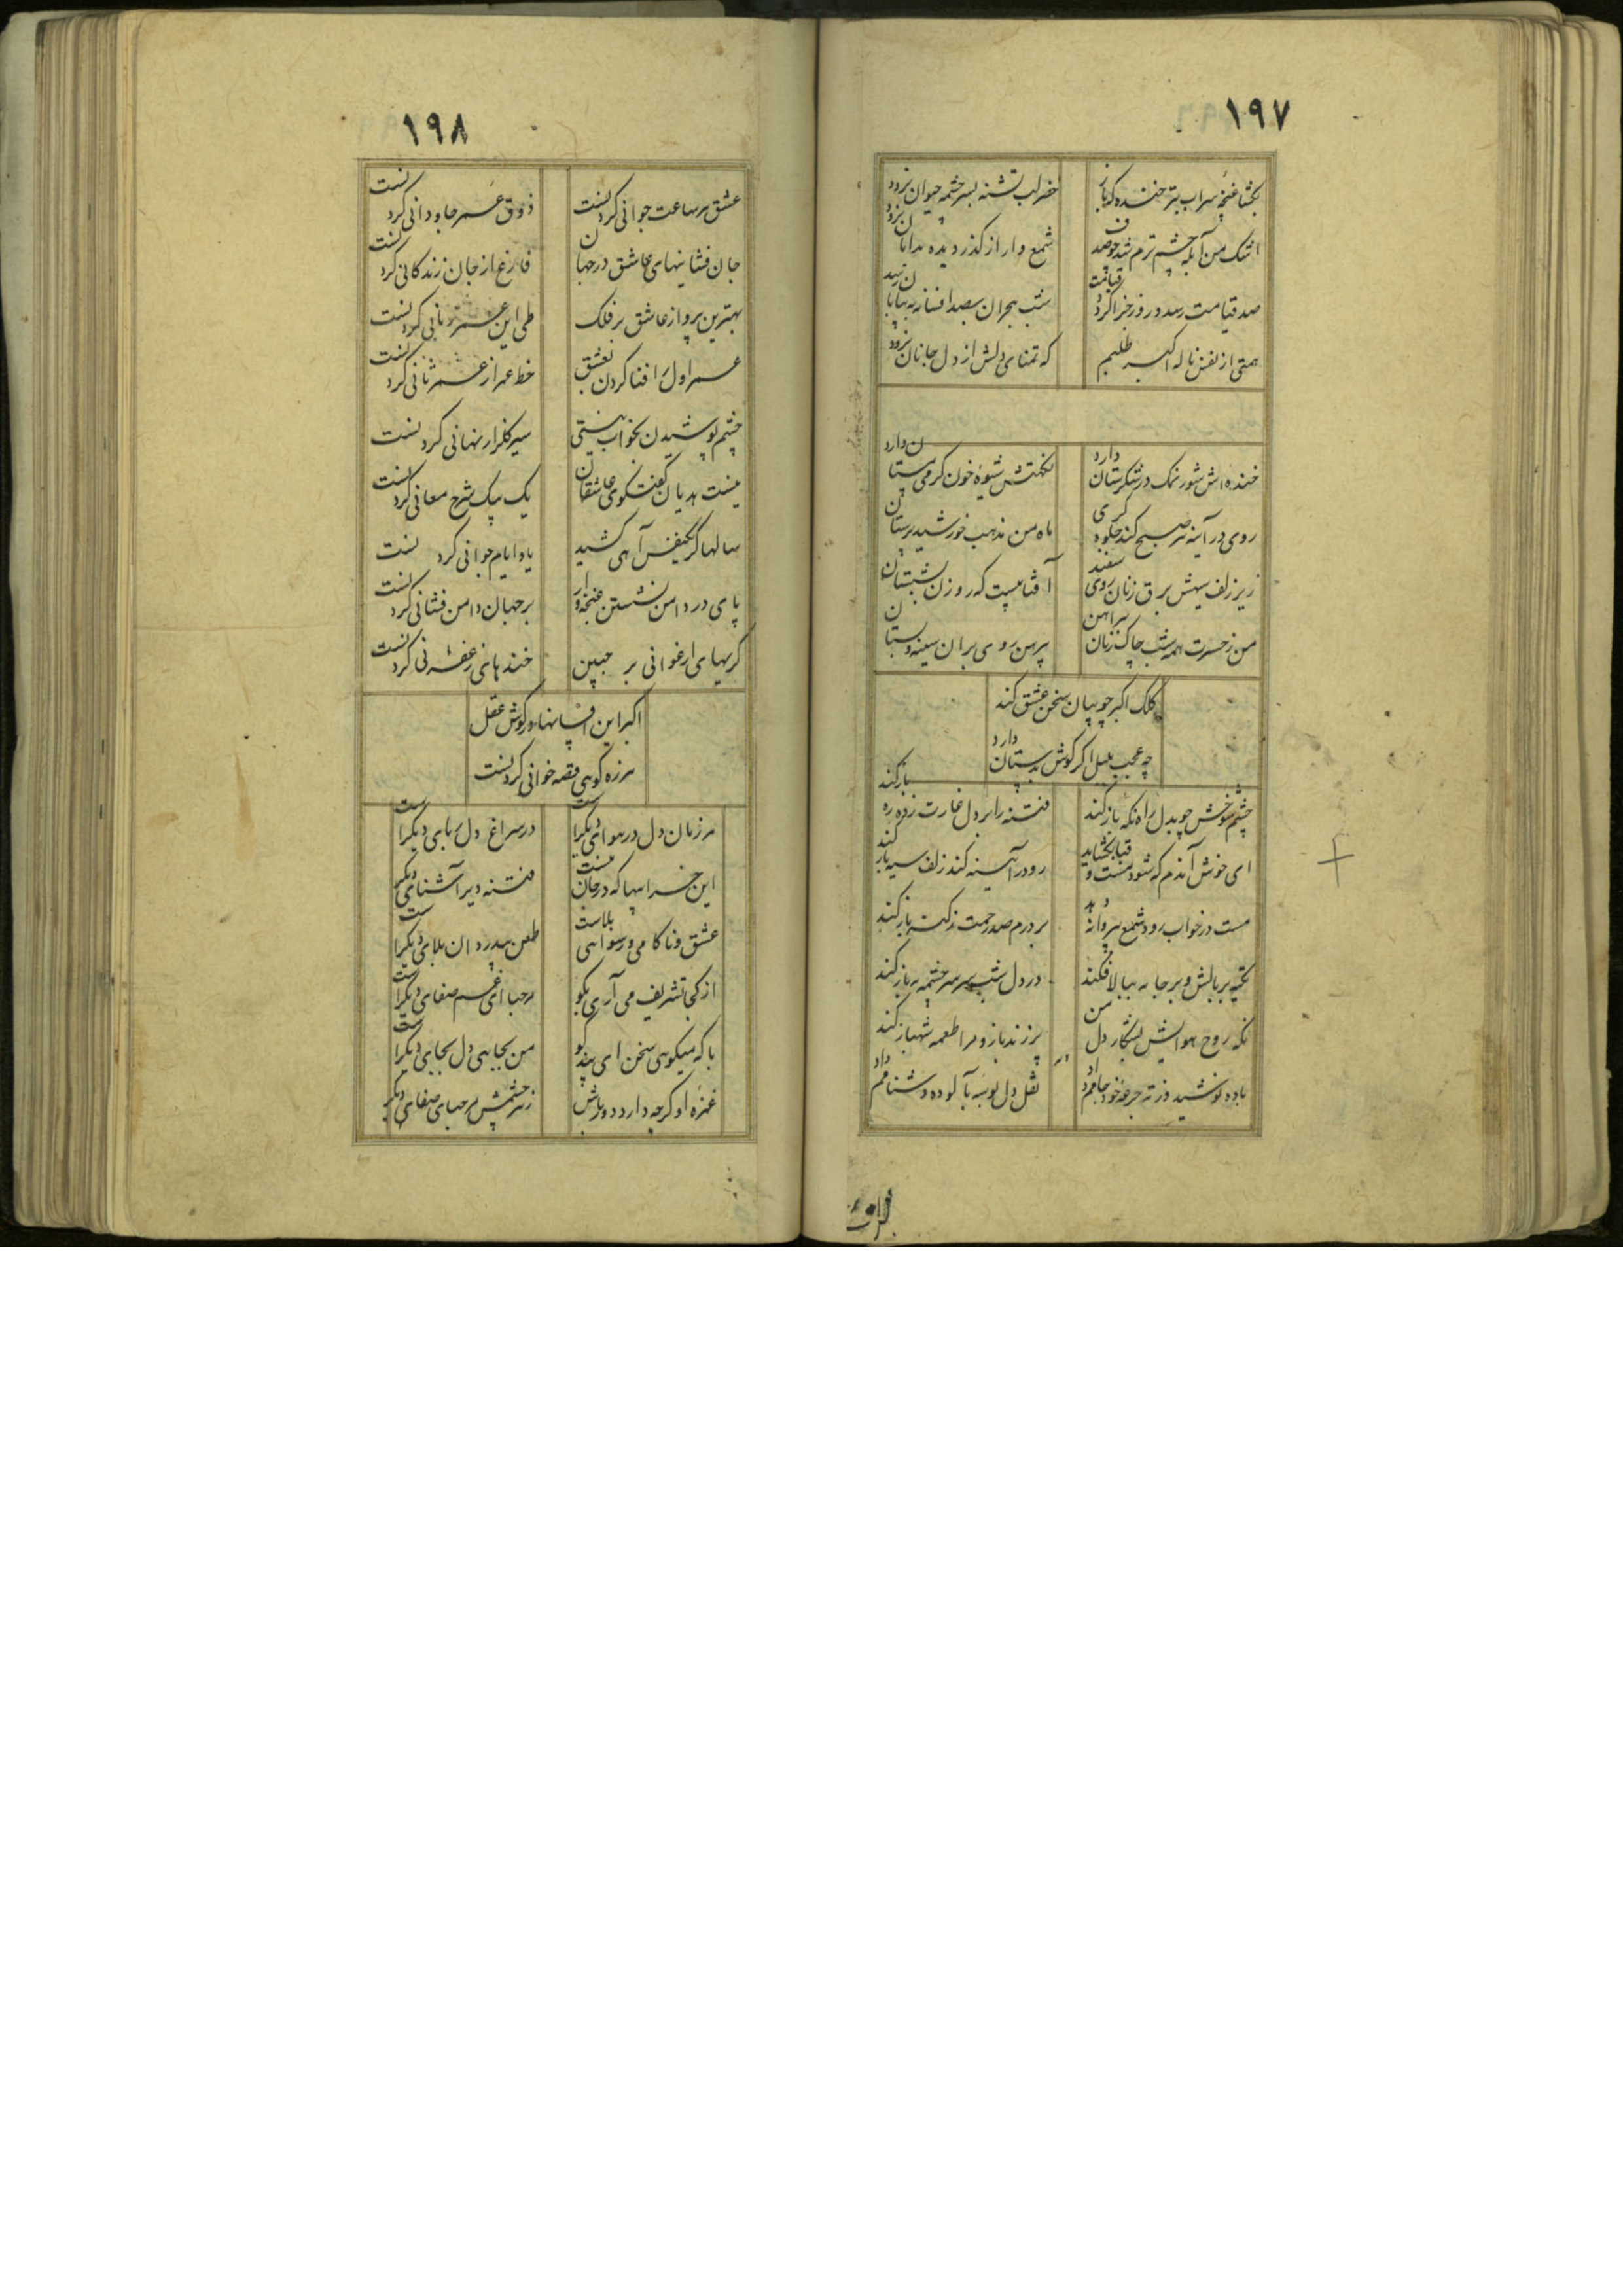 ۱۹۷
بکشا غنچه سیراب بتر خنده که باز
خضر لب تشنه بسر چشمه حیوان نرود
اشک من آبله چشم ترم شد
شمع وار از گذر دیده بدامان نرود
صد قیامت رسد و روز جزا کرد
شب هجران بصد افسانه بپایان نرسد
همتی از نفس ناله اکبر طلبیم
که تمنای دلش از دل جانان نرود
خنده اش شور نمک در شکرستان دارد
شیوه خون کرمی دارد
روی در آینه صبح کند جلوه کری
ماه من مذهب خورشید پرستان
زیر زلف سیهش برق زنان روی سفید
آفتابیست که روزن بشبستان
من ز حسرت همه شب چاک زنان پیراهن
پیرهن روی بران سینه و بستان
کلک اکبر چو بیان سخن عشق کند
چه عجب بلبل اکر کوش بدستان دارد
چشم شوخش چو بدل راه نکه باز کند
فتنه را بر دل غارت زده ره باز کند
ای خوش آندم که شود مست و قبا بکشاید
رو در آینه کند زلف سیه باز کند
مست در خواب رود شمع بپروانه دهد
بر درم صد رحمت ز کنه باز کند
تکیه بر بالش و بر جامه ببالا فکند
در دل شب سر سر چشمه مه باز کند
نکه روح هوایش بشکار دل من
پر زند باز و مرا طعمه شهباز کند
وله
باده نوشید و ز ته جرعه خود جامم داد
نقل دل بوسه بآلوده دشنامم داد
۱۹۸
عشق هر ساعت جوانی کردنست
ذوق عمر جاودانی کردنست
جان فشانیهای عاشق در جهان
فارغ از جان زندکانی کردنست
بهترین پرواز عاشق بر فلک
طی این کردنست
عمر اول را فنا کردن بعشق
خط عمر از عمر ثانی کردنست
چشم پوشیدن بخواب نیستی
سیر کلزار نهانی کردنست
نیست هذیان کفتکوی عاشقان
یک بیک شرح معانی کردنست
سالها کر یکنفس آهی کشید
یاد ایام جوانی کردنست
پای در دامن نشستن غنچه وار
بر جهان دامن فشانی کردنست
کریهای ارغوانی بر جبین
خندهای زعفرانی کردنست
اکبر این افسانها در کوش عقل
هرزه کوهی قصه خوانی کردنست
هر زمان دل در هوای دیکراست
در سراغ دلربای دیکراست
این خرابیها که در جان منست
فتنه دیر آشنای دیکر
عشق و ناکامی و رسواهی بلاست
طعن بیدردان بلای دیکراست
از کجا تشریف می آری بکو
مرحبا ای غم صفای دیکراست
با که میکوهی سخن ای پند کو
من بجایی دل بجای دیکراست
غمزه او کرچه دارد دورباش
زیر چشمش مرحبای صفای دیکر